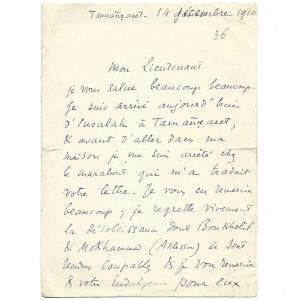 Tamañγaret. 14 décembre 1910
36
Mon Lieutenant
je vous salue beaucoup beaucoup.
Je suis arrivé aujourd'hui
d'Insalah à Tamañγaret,
& avant d'aller dans ma
maison je me suis arrêté chez
le marabout qui m'a traduit
votre lettre. Je vous en remercie
beaucoup ; je regrette vivement
la désobeissance dont Boukhelil
& Mokhammed se sont
rendus coupables & je vous remercie
de votre indulgence pour eux.